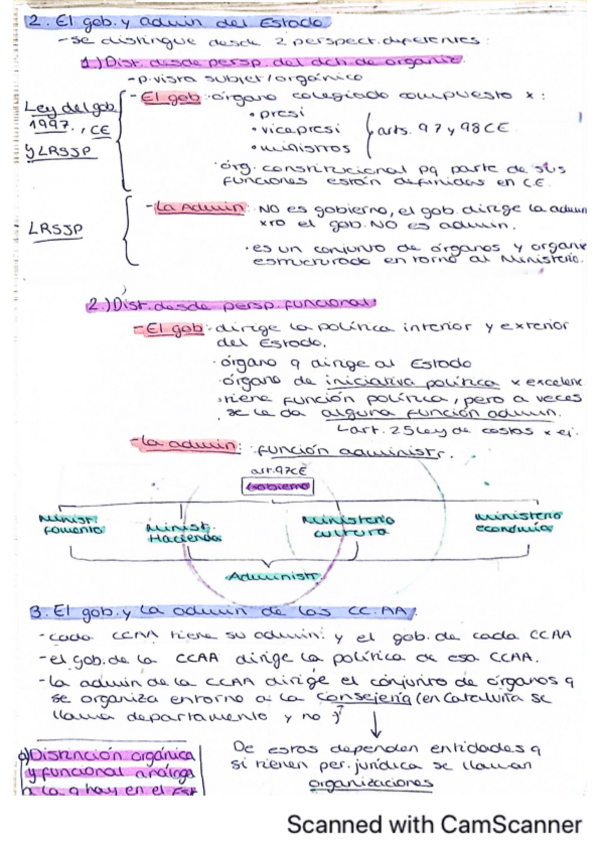 2. El gob. y admin del Estado
- se distingue desde 2 perspect. diferentes:
1.) Dist. desde persp. del dch. de organiz.
- p. vista subjet/orgánico
Ley del gob 1997., CE y LRSJP
- El gob: órgano colegiado compuesto x:
• presi
• vicepresi
• ministros
arts. 97 y 98 CE
· órg. constitucional pq parte de sus
funciones están definidas en CE.
LRSJP
- La Admin: NO es gobierno, el gob. dirige la admin
xro el gob. NO es admin.
· es un conjunto de órganos y organi
estructurado en torno al Ministerio.
2.) Dist. desde persp. funcional:
- El gob: dirige la política interior y exterior
del Estado.
· órgano q dirige al Estado
· órgano de iniciativa política x excelenc
· tiene función política, pero a veces
se le da alguna función admin.
art. 25 ley de costas x ej.
- la admin: función administr.
art. 97 CE
Gobierno
Minist. fomento
Minist. Hacienda
Ministerio cultura
Ministerio economía
Administr.
3. El gob. y la admin de las CC.AA.
- cada CCAA tiene su admin. y el gob. de cada CCAA
- el gob. de la CCAA dirige la política de esa CCAA.
- la admin de la CCAA dirige el conjunto de órganos q
se organiza entorno a la consejería (en Cataluña se
llama departamento y no )
De estas dependen entidades q
si tienen per. jurídica se llaman
organizaciones
a) Distinción orgánica
y funcional análoga
a la q hay en el Est
Scanned with CamScanner